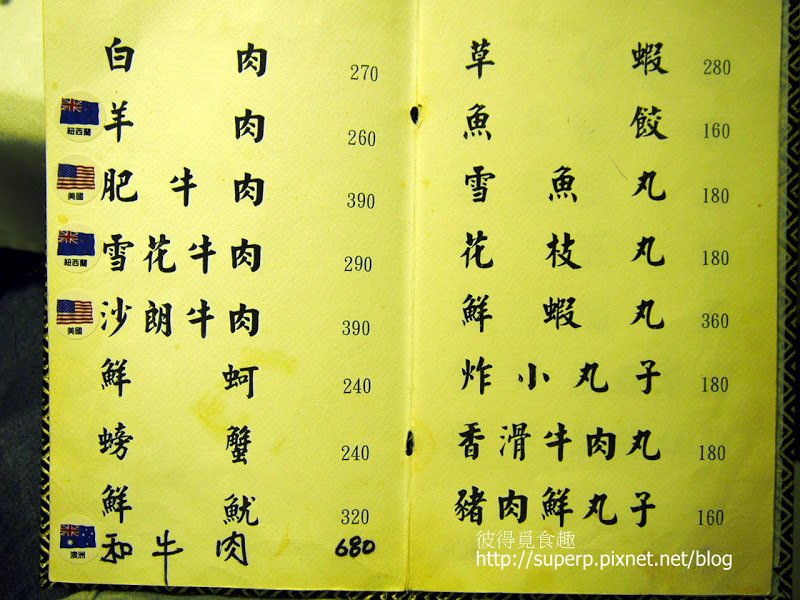 白肉 270
紐西蘭 羊肉 260
美國 肥牛肉 390
紐西蘭 雪花牛肉 290
美國 沙朗牛肉 390
鮮蚵 240
螃蟹 240
鮮魷 320
澳洲 和牛肉 680
草蝦 280
魚餃 160
雪魚丸 180
花枝丸 180
鮮蝦丸 360
炸小丸子 180
香滑牛肉丸 180
豬肉鮮丸子 160
彼得覓食趣
http://superp.pixnet.net/blog